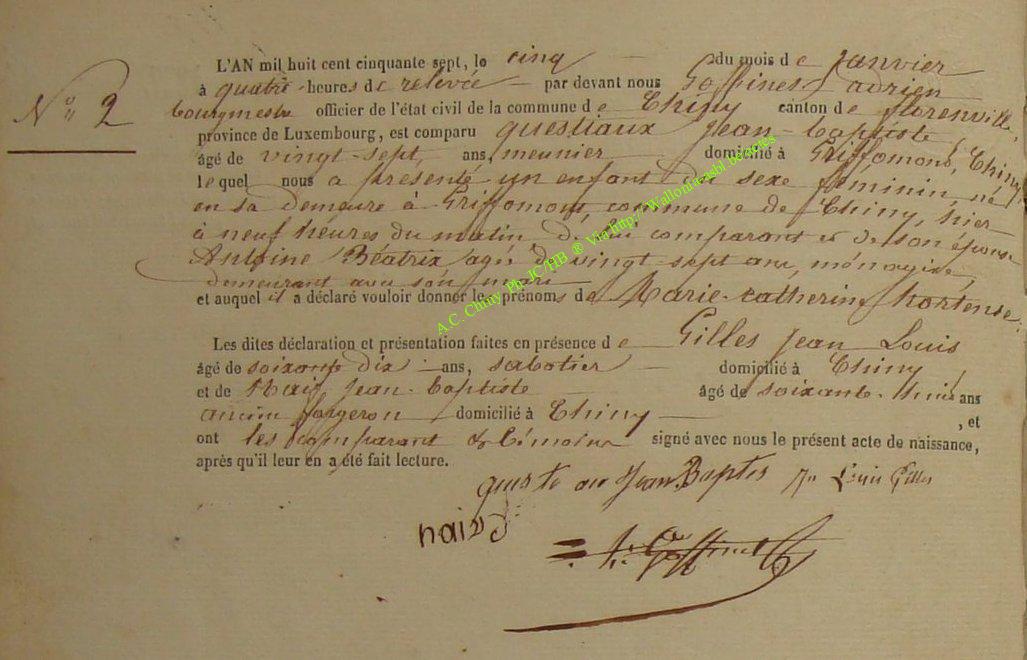 N° 2
L'AN mil huit cent cinquante sept, le cinq du mois de janvier
à quatre heures de relevée par devant nous Goffinet adrien
bourgmestre officier de l'état civil de la commune de Chiny canton de florenville,
province de Luxembourg, est comparu questiaux jean-baptiste
âgé de vingt-sept, ans, meunier domicilié à Griffomont, Chiny
lequel nous a présenté un enfant du sexe féminin, né
en sa demeure à Griffomont, commune de Chiny, hier
à neuf heures du matin de lui comparant et de son épouse
Antoine Béatrix agée de vingt-sept ans, ménagère,
demeurant avec son mari
et auquel il a déclaré vouloir donner les prénoms de Marie-catherine hortense.
Les dites déclaration et présentation faites en présence de Gilles Jean Louis
âgé de soixante dix ans, sabotier domicilié à Chiny,
et de jean-baptiste âgé de soixante ans
ancien forgeron domicilié à Chiny , et
ont les comparant & témoins signé avec nous le présent acte de naissance,
après qu'il leur en a été fait lecture.
Jean Baptis Jn Louis Gilles
A.C. Chiny Ph. JC/HB ® Via http://Wallonia-asbl.be/actes